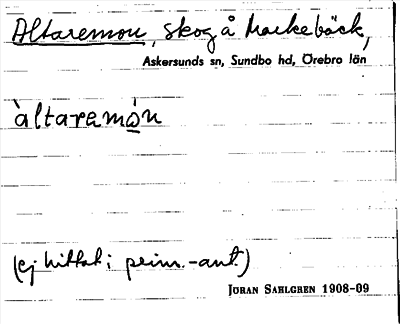 Altaremon, skog å Markebäck,
Askersunds sn, Sundbo hd, Örebro län
àltaremó̲n
(ej hittat i prim.-ant.)
JÖRAN SAHLGREN 1908-09